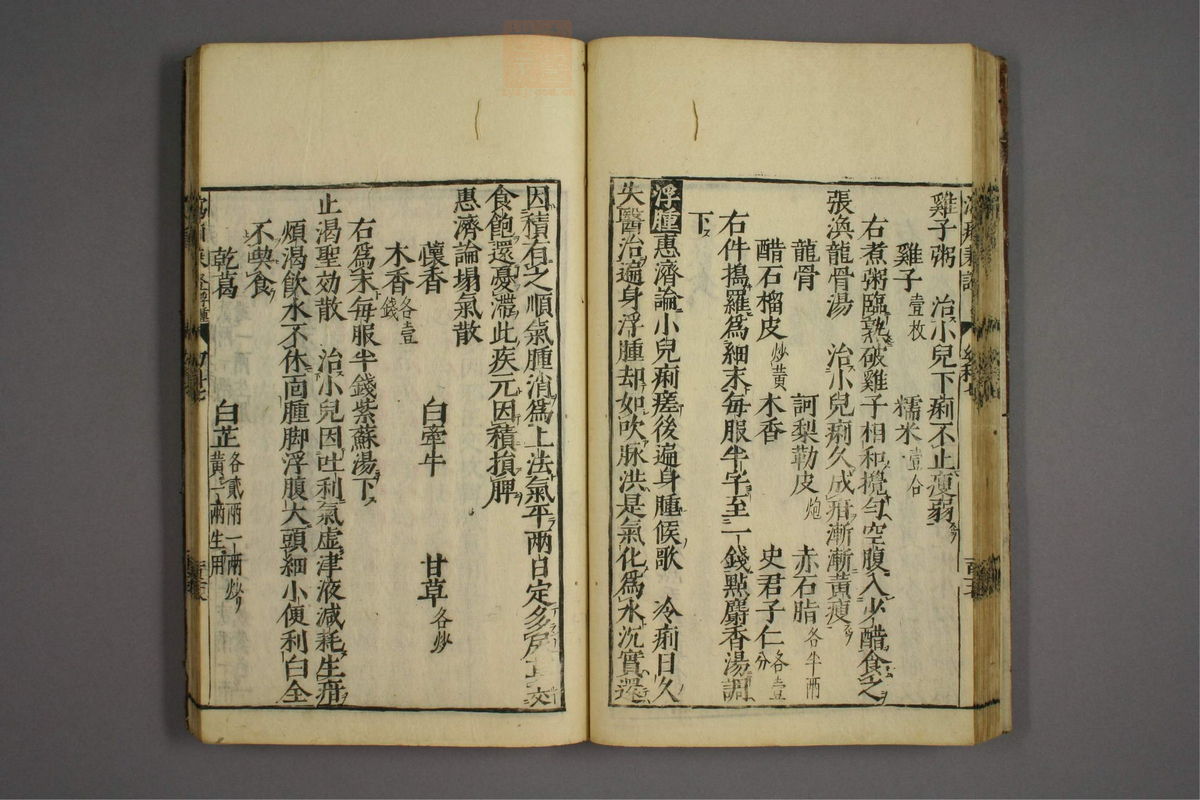 雞子粥　治小兒下痢不止瘦弱
雞子壹枚　糯米壹合
右煮粥臨熟破雞子相和攪勻空腹入少醋食之
張渙龍骨湯　治小兒痢久成疳漸漸黃瘦
龍骨　訶梨勒皮炮　赤石脂各半兩
醋石榴皮炒黃　木香　史君子仁各壹分
右件搗羅爲細末每服半字至一錢點麝香湯調
下
浮腫　惠濟論小兒痢瘥後遍身腫候歌　冷痢日久
失醫治遍身浮腫却如吹脉洪是氣化爲水沉實還
因積有之順氣腫消爲上法氣平兩日定多
食飽還憂滯此疾元因積損脾
惠濟論塌氣散
懷香　白牽牛　甘草各炒
木香各壹錢
右爲末每服半錢紫蘇湯下
止渴聖効散　治小兒因吐利氣虛津液減耗生疳
煩渴飲水不休面腫脚浮腹大頭細小便利白全
不喫食
乾葛　白芷各貳兩一兩炒黃一兩生用